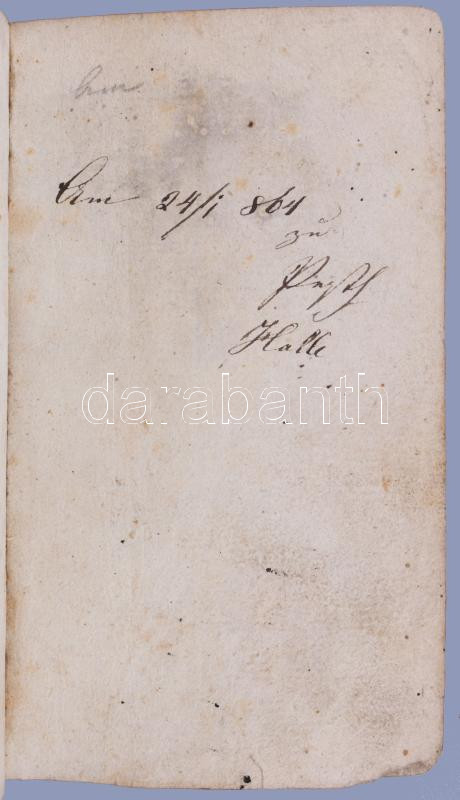 Am
Am 24/1 864
zu
Pesth
Halle
darabanth